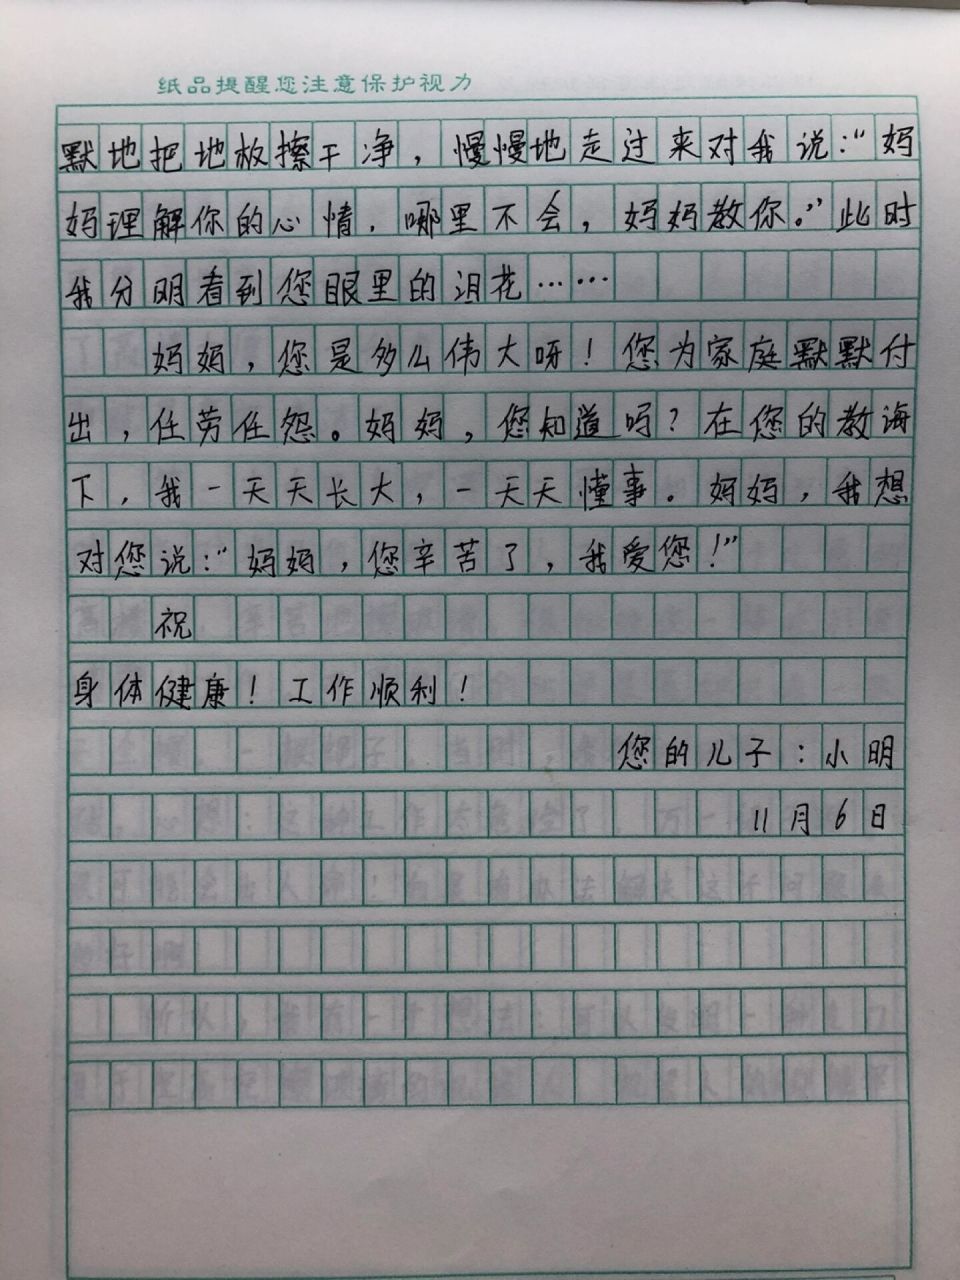 纸品提醒您注意保护视力
默地把地板擦干净，慢慢地走过来对我说：“妈
妈理解你的心情，哪里不会，妈妈教你。”此时
我分明看到您眼里的泪花……
妈妈，您是多么伟大呀！您为家庭默默付
出，任劳任怨。妈妈，您知道吗？在您的教诲
下，我一天天长大，一天天懂事。妈妈，我想
对您说：“妈妈，您辛苦了，我爱您！”
祝
身体健康！工作顺利！
您的儿子：小明
11月6日